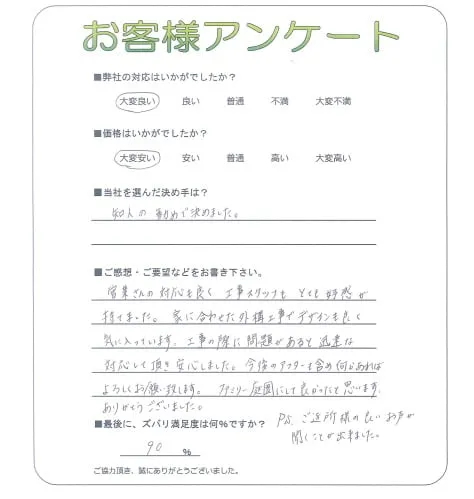 お客様アンケート
■弊社の対応はいかがでしたか？
大変良い 良い 普通 不満 大変不満
■価格はいかがでしたか？
大変安い 安い 普通 高い 大変高い
■当社を選んだ決め手は？
知人の勧めで決めました。
■ご感想・ご要望などをお書き下さい。
営業さんの対応も良く 工事スタッフも とても好感が
持てました。 家に合わせた外構工事でデザインも良く
気に入っています。 工事の際に問題があると迅速な
対応して頂き安心しました。 今後のアフターも含め何かあれば
よろしくお願い致します。 ファミリー庭園にして良かったと思います。
ありがとうございました。
■最後に、ズバリ満足度は何%ですか？
90 %
P.S. ご近所様の良いお声が
聞くことが出来ました。
ご協力頂き、誠にありがとうございました。